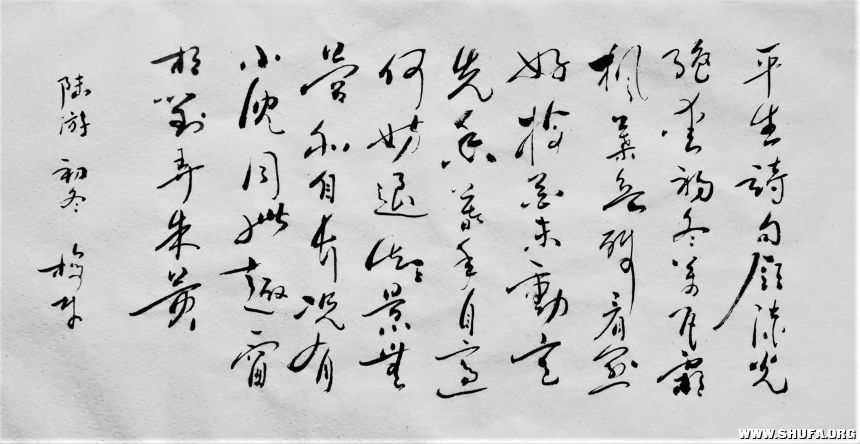 平生詩句領流光
绝爱初冬万瓦霜
枫葉欲残看愈
好梅花未動意
先香暮年自適
何妨退短景無
营亦自长况有
小兒同此趣一窗
相對弄朱黄
陆游 初冬
WWW.SHUFA.ORG